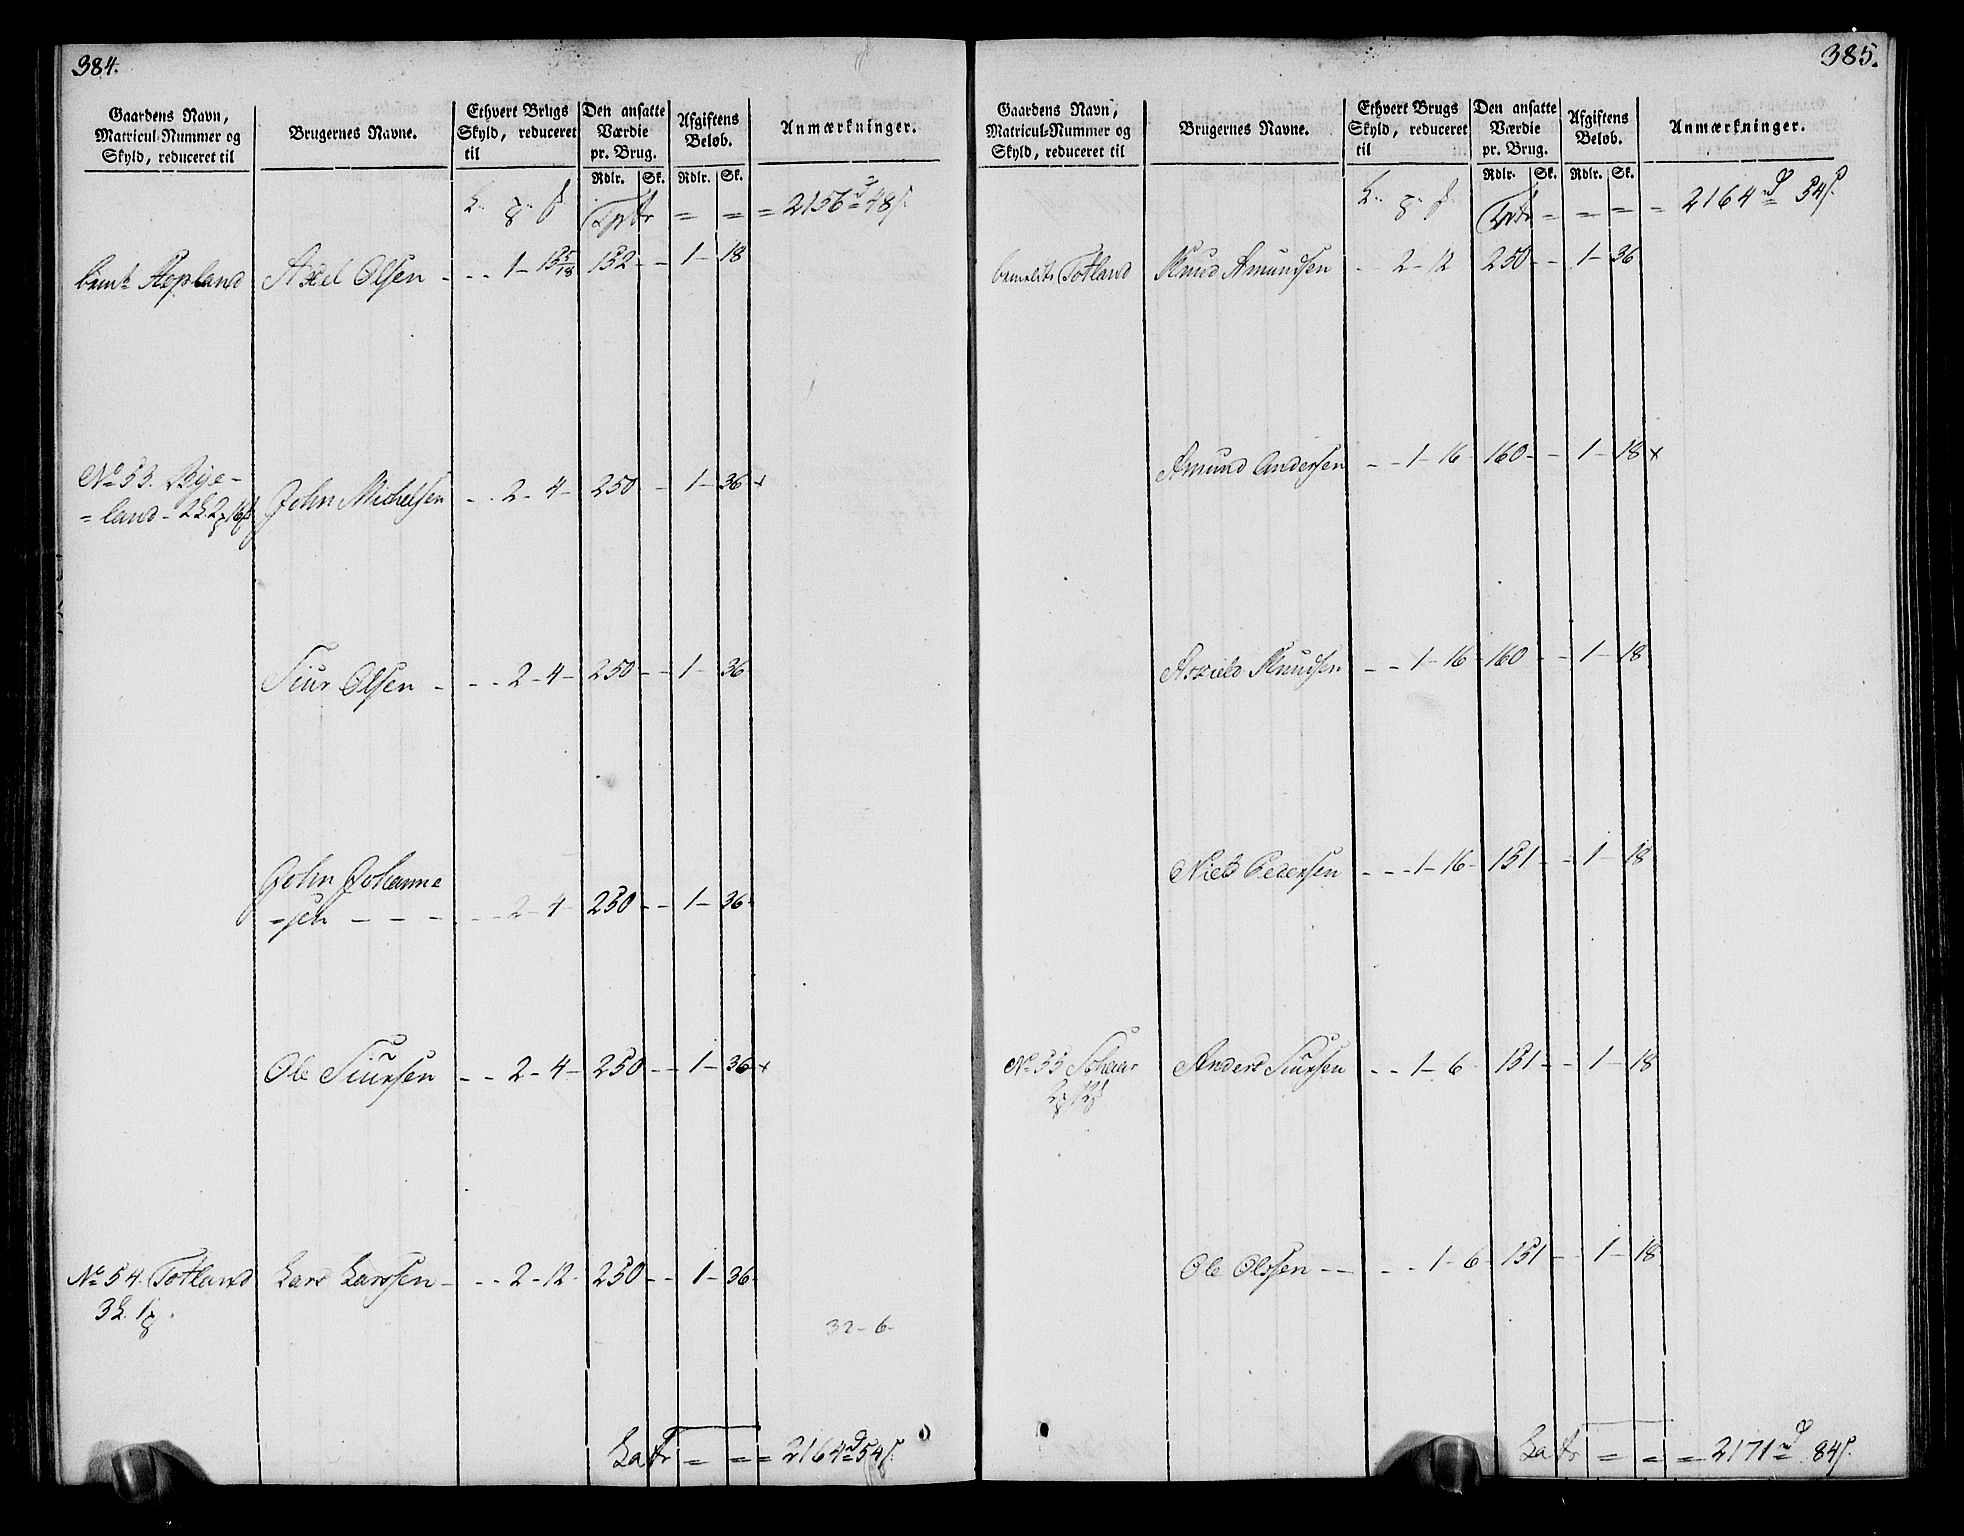 384.
Gaardens Navn, Matricul-Nummer og Skyld, reduceret til
Brugernes Navne.
Ethvert Brugs Skyld, reduceret til
Den ansatte Værdie pr. Brug.
Afgiftens Beløb.
Anmærkninger.
Rdlr. Sk. Rdlr. Sk.
Trptr = = = 2156 48
Hopland Axel Olsen - - - 1 - 15 5/18 152 - - 1 - 18
No 53. Bye-
=land - 2 2 16 John Michelsen - - 2 - 4 - 250 - 1 - 36 x
Siur Olsen - - - 2 - 4 - 250 - - 1 - 36
John Johanne
=sen - - - - - 2 - 4 - 250 - - 1 - 36
Ole Siursen - - 2 - 4 - 250 - - 1 - 36 x
No 54. Totland Lars Larssen - - - 2 - 12 - 250 - - 1 - 36
3 1
32 - 6 -
Latr = = = 2164 54
385.
Gaardens Navn, Matricul-Nummer og Skyld, reduceret til
Brugernes Navne.
Ethvert Brugs Skyld, reduceret til
Den ansatte Værdie pr. Brug.
Afgiftens Beløb.
Anmærkninger.
Rdlr. Sk. Rdlr. Sk.
Trptr = = = = 2164 54
bemelte Totland Knud Amundsen - - 2 - 12 250 - - 1 - 36
Amund Andersen - - 1 - 16 - 160 - - 1 - 18 x
Knudsen - - 1 - 16 - 160 - - 1 - 18
Niels Pedersen - - - 1 - 16 - 151 - - 1 - 18
No 55 Anders Siursen - - 1 - 6 - 151 - - 1 - 18
Ole Olssen - - - - - 1 - 6 - 151 - - 1 - 18
Latr = = = 2171 84